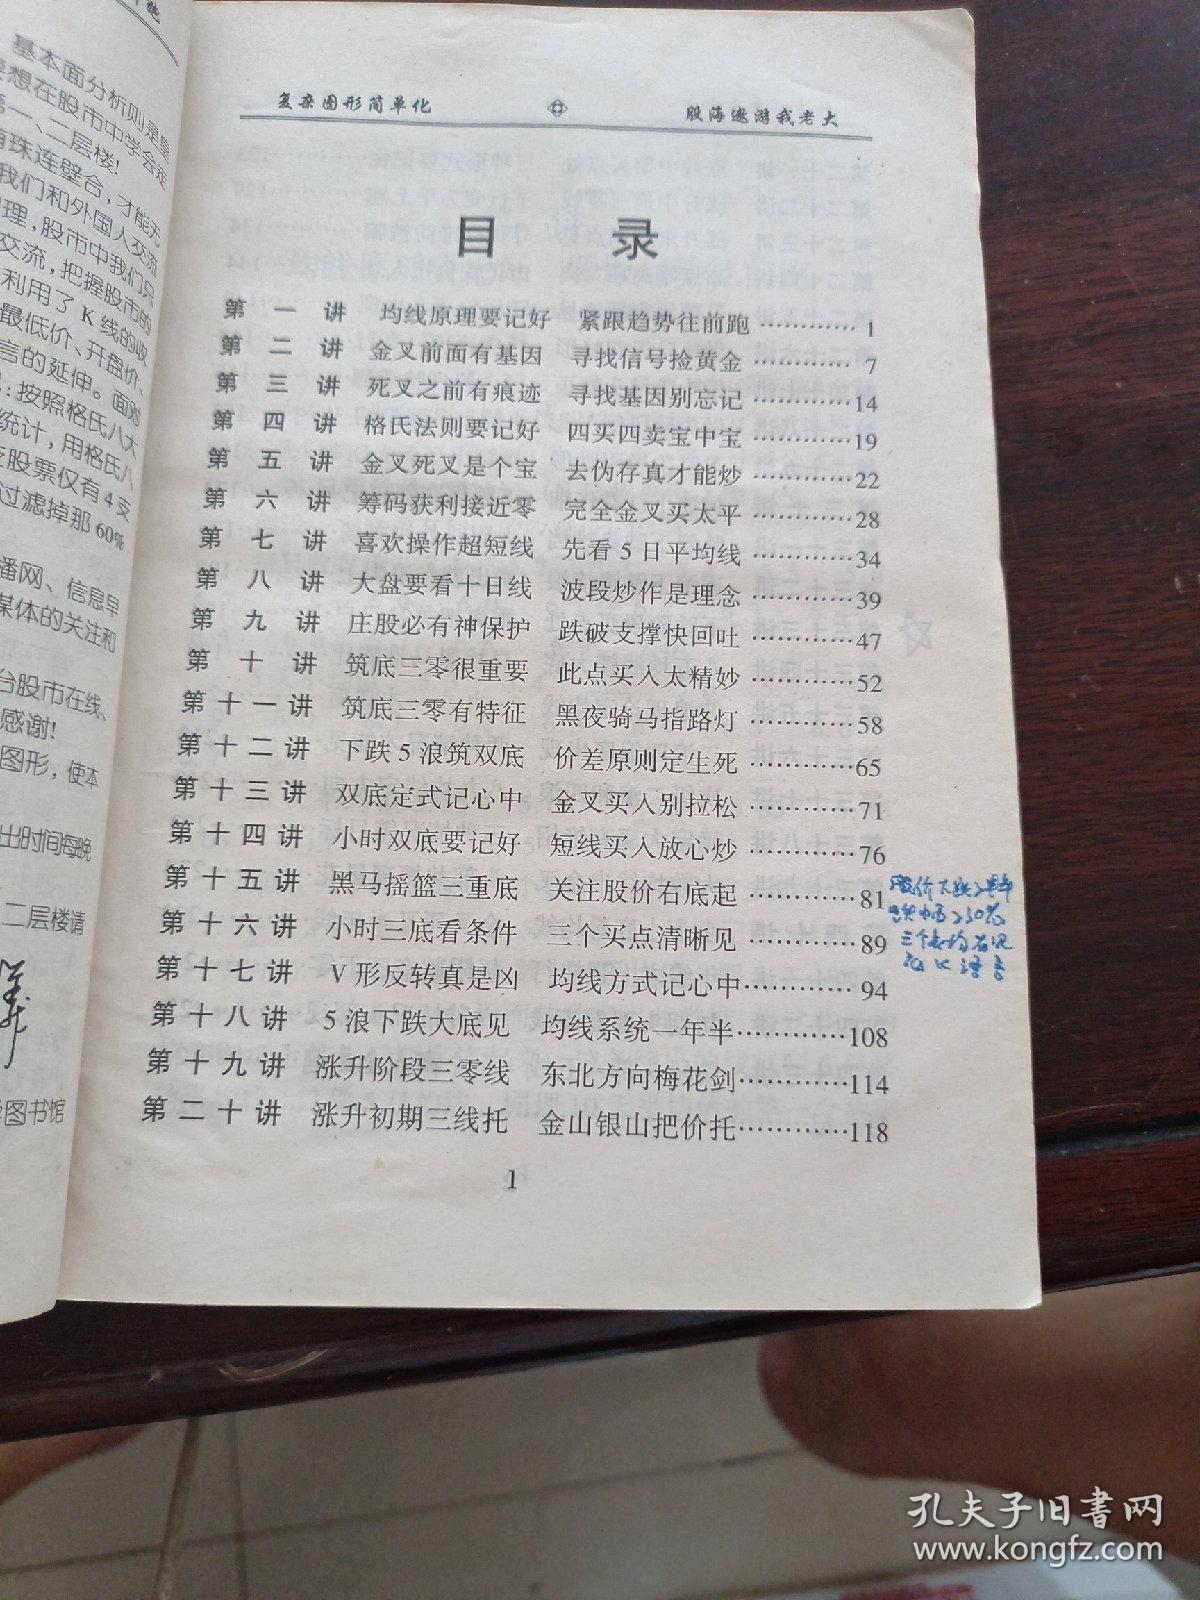 基本面分析则是望
要想在股市中学会走
第一、二层楼!
有珠连璧合，才能无
我们和外国人交流
理，股市中我们只
交流，把握股市的
利用了 K 线的收
最低价、开盘价、
言的延伸。面对
:按照格氏八大
统计，用格氏八
支股票仅有4支
过滤掉那60%
播网、信息早
媒体的关注和
台股市在线、
感谢!
图形，使本
出时间每晚
二层楼请
图书馆
复杂图形简单化 股海遨游我老大
目 录
第一讲 均线原理要记好 紧跟趋势往前跑 …………1
第二讲 金叉前面有基因 寻找信号捡黄金 …………7
第三讲 死叉之前有痕迹 寻找基因别忘记 …………14
第四讲 格氏法则要记好 四买四卖宝中宝 …………19
第五讲 金叉死叉是个宝 去伪存真才能炒 …………22
第六讲 筹码获利接近零 完全金叉买太平 …………28
第七讲 喜欢操作超短线 先看5日平均线 …………34
第八讲 大盘要看十日线 波段炒作是理念 …………39
第九讲 庄股必有神保护 跌破支撑快回吐 …………47
第十讲 筑底三零很重要 此点买入太精妙 …………52
第十一讲 筑底三零有特征 黑夜骑马指路灯 …………58
第十二讲 下跌5浪筑双底 价差原则定生死 …………65
第十三讲 双底定式记心中 金叉买入别拉松 …………71
第十四讲 小时双底要记好 短线买入放心炒 …………76
第十五讲 黑马摇篮三重底 关注股价右底起 …………81
第十六讲 小时三底看条件 三个买点清晰见 …………89
第十七讲 V形反转真是凶 均线方式记心中…………94
第十八讲 5浪下跌大底见 均线系统一年半…………108
第十九讲 涨升阶段三零线 东北方向梅花剑…………114
第二十讲 涨升初期三线托 金山银山把价托…………118
1
孔夫子旧书网
www.kongfz.com